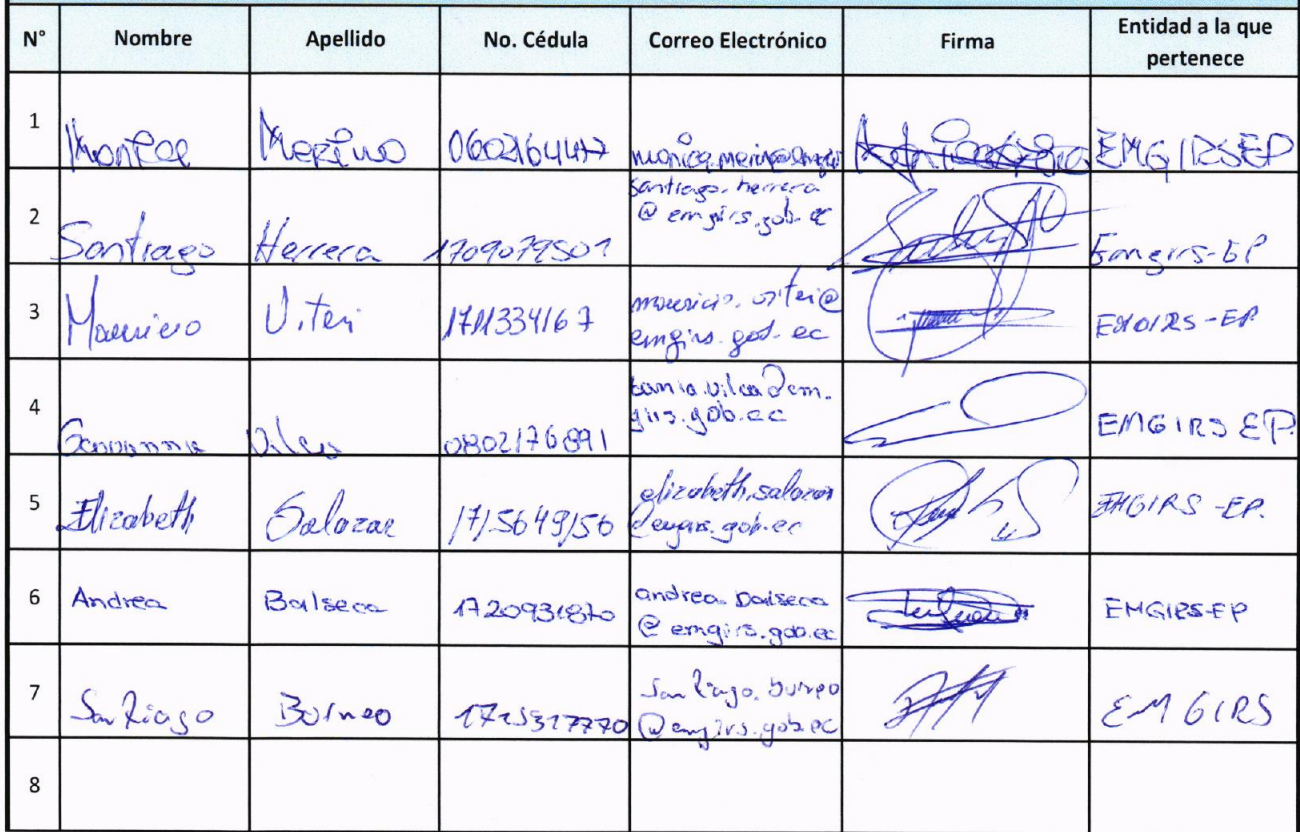 N° Nombre Apellido No. Cédula Correo Electrónico Firma Entidad a la que pertenece
1 Monica Merino 0602164477 monica.merino@emgirs EMGIRSEP
2 Santiago Herrera 1709079501 santiago.herrera @emgirs.gob.ec Emgirs-EP
3 Mauricio Viteri 1711334167 mauricio.viteri@ emgirs.gob.ec EMGIRS-EP
4 Vilca 0802176891 tania.vilca@em. girs.gob.ec EMGIRS EP.
5 Elizabeth Salazar 1715649156 elizabeth.salazar @emgirs.gob.ec EMGIRS-EP.
6 Andrea Balseca 1720931870 andrea.balseca @emgirs.gob.ec EMGIRSEP
7 Santiago Burneo 1715317770 Santiago.burneo @emgirs.gob.ec EMGIRS
8